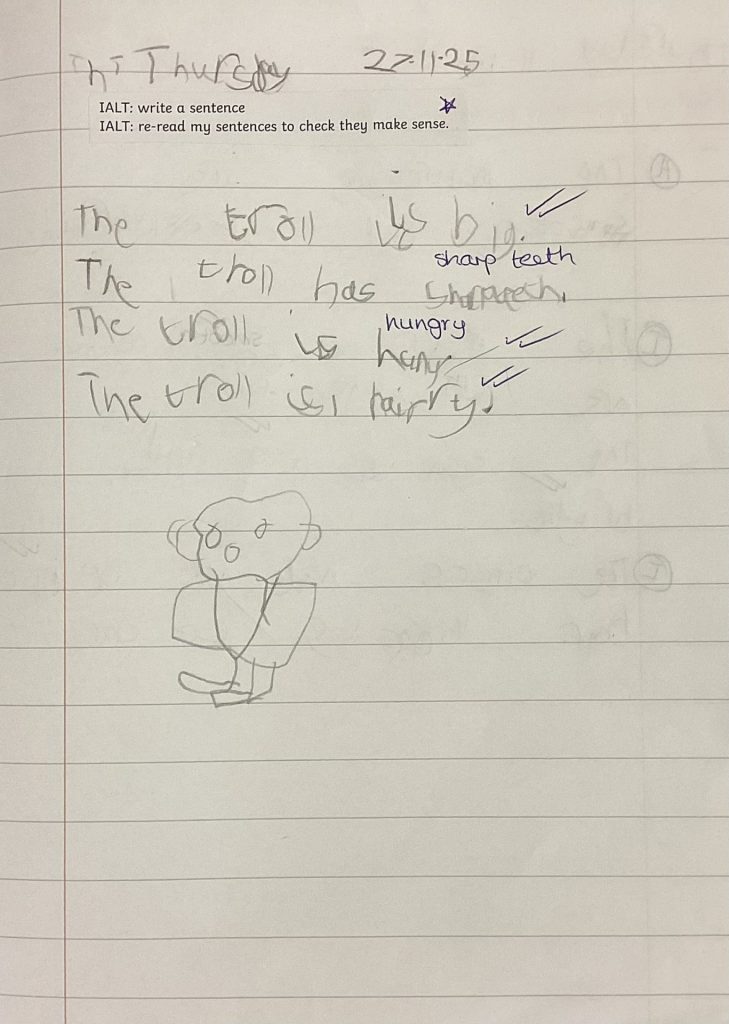 Thursday 27.11.25
IALT: write a sentence
IALT: re-read my sentences to check they make sense.
The troll is big.
sharp teeth
The troll has
hungry
The troll is
The troll is hairry.